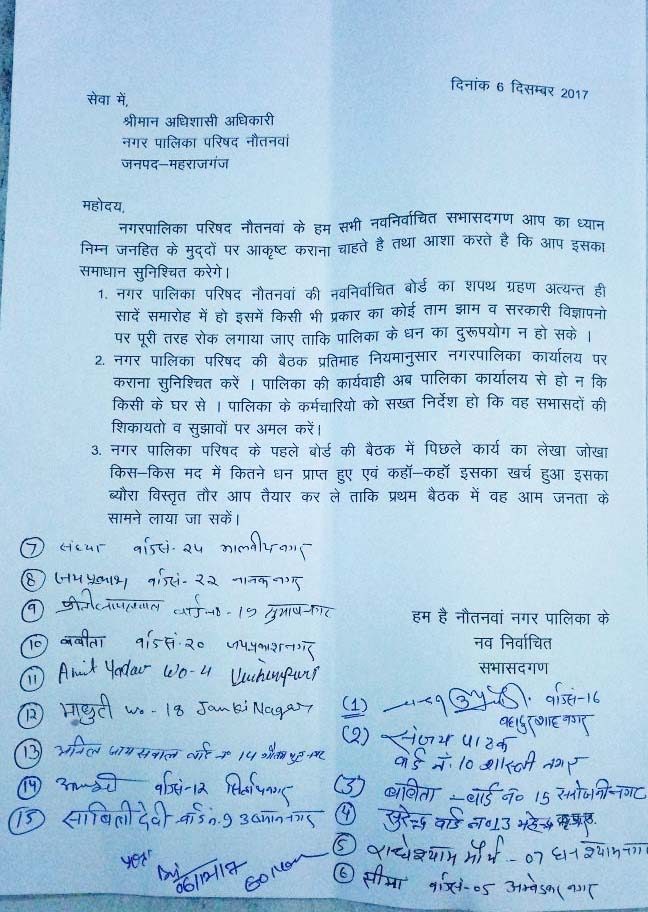 दिनांक 6 दिसम्बर 2017
सेवा में,
श्रीमान अधिशासी अधिकारी
नगर पालिका परिषद नौतनवां
जनपद–महराजगंज
महोदय,
नगरपालिका परिषद नौतनवां के हम सभी नवनिर्वाचित सभासदगण आप का ध्यान
निम्न जनहित के मुद्दों पर आकृष्ट कराना चाहते है तथा आशा करते है कि आप इसका
समाधान सुनिश्चित करेगे।
1. नगर पालिका परिषद नौतनवां की नवनिर्वाचित बोर्ड का शपथ ग्रहण अत्यन्त ही
सादें समारोह में हो इसमें किसी भी प्रकार का कोई ताम झाम व सरकारी विज्ञापनो
पर पूरी तरह रोक लगाया जाए ताकि पालिका के धन का दुरूपयोग न हो सके ।
2. नगर पालिका परिषद की बैठक प्रतिमाह नियमानुसार नगरपालिका कार्यालय पर
कराना सुनिश्चित करें । पालिका की कार्यवाही अब पालिका कार्यालय से हो न कि
किसी के घर से । पालिका के कर्मचारियो को सख्त निर्देश हो कि वह सभासदों की
शिकायतो व सुझावों पर अमल करें।
3. नगर पालिका परिषद के पहले बोर्ड की बैठक में पिछले कार्य का लेखा जोखा
किस–किस मद में कितने धन प्राप्त हुए एवं कहॉ–कहॉ इसका खर्च हुआ इसका
ब्यौरा विस्तृत तौर आप तैयार कर ले ताकि प्रथम बैठक में वह आम जनता के
सामने लाया जा सकें।
7 संध्या वार्ड सं- 24 मालवीय नगर
8 जयप्रकाश वार्ड सं- 22 नानक नगर
9 जायसवाल वार्ड नं- 19 सुभाष नगर
10 बबीता वार्ड सं- 20 जयप्रकाश नगर
11 Amit Yadav wo-4
12 माधुरी wo-18 Janki Nagar
13 अनिल जायसवाल वार्ड न 14 गौतम बुद्ध नगर
14 वार्ड सं- 12 नगर
15 सावित्री देवी वार्ड न. 9 नगर
हम है नौतनवां नगर पालिका के
नव निर्वाचित
सभासदगण
(1) वार्ड सं-16
बहादुर शाह नगर
(2) संजय पाठक
वार्ड नं. 10 शास्त्री नगर
(3) बबिता – वार्ड न० 15 सरोजनी नगर
4 सुरेन्द्र वार्ड न० 13 महेन्द्र नगर
5 राधेश्याम मौर्य - 07 घनश्याम नगर
6 सीमा वार्ड सं- 05 अम्बेडकर नगर